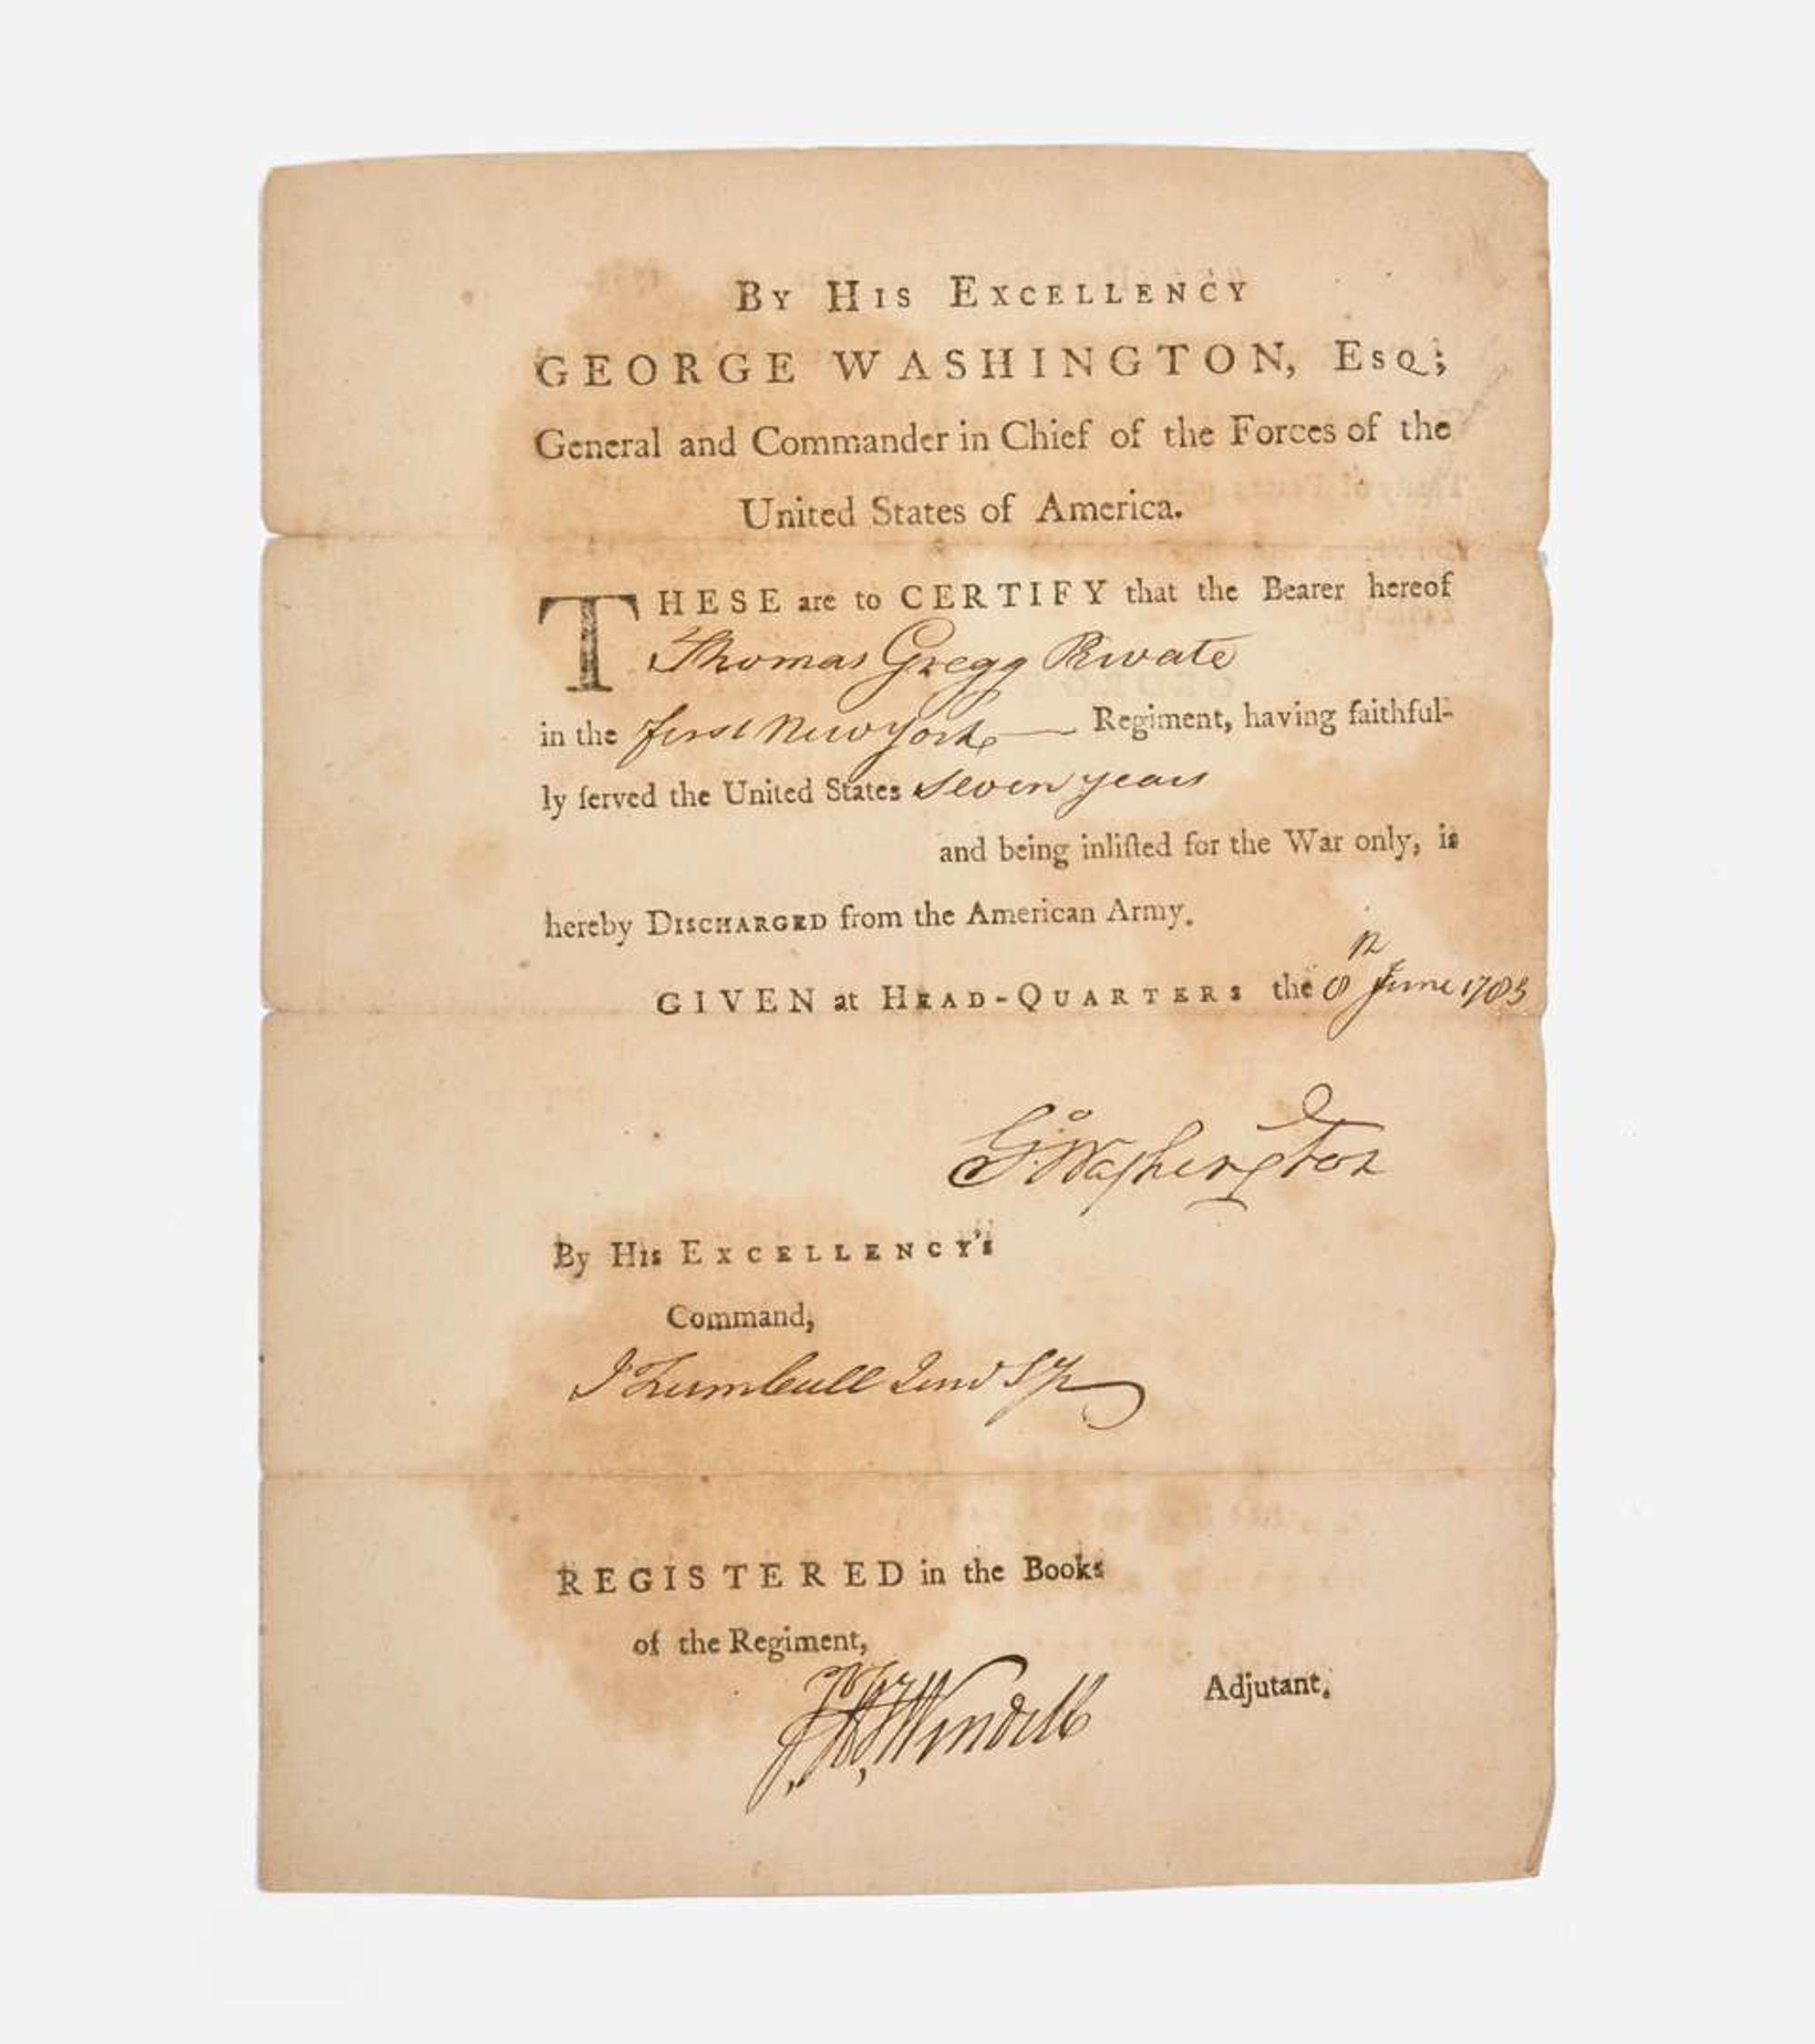 By His Excellency
GEORGE WASHINGTON, Esq;
General and Commander in Chief of the Forces of the
United States of America.
THESE are to CERTIFY that the Bearer hereof
Thomas Gregg Private
in the first New york Regiment, having faithful-
ly ſerved the United States seven years
and being inliſted for the War only, is
hereby Discharged from the American Army.
GIVEN at Head-Quarters the 8th June 1783
Go: Washington
By His Excellency's
Command,
J Trumbull Junr Sy
REGISTERED in the Books
of the Regiment,
Wendell Adjutant.